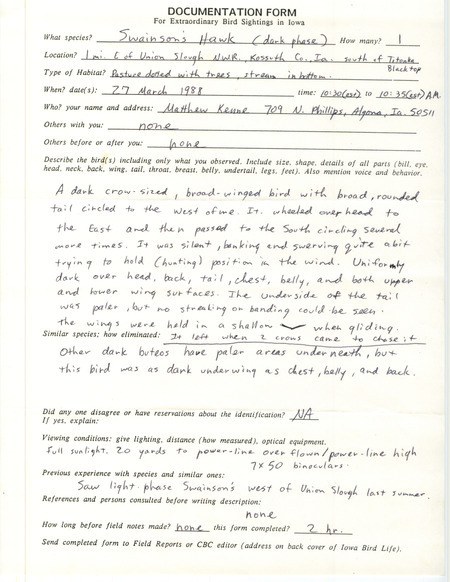 DOCUMENTATION FORM
For Extraordinary Bird Sightings in Iowa
What species? Swainson's Hawk (dark phase) How many? 1
Location? 1 mi. E of Union Slough NWR, Kossuth Co., Ia. south of Titonka Blacktop
Type of Habitat? Pasture dotted with trees, stream in bottom.
When? date(s): 27 March 1988 time: 10:30(est) to 10:35(est) A.M.
Who? your name and address: Matthew Kenne 709 N. Phillips, Algona, Ia. 50511
Others with you: none
Others before or after you: none
Describe the bird(s) including only what you observed. Include size, shape, details of all parts (bill, eye,
head, neck, back, wing, tail, throat, breast, belly, undertail, legs, feet). Also mention voice and behavior.
A dark crow-sized, broad-winged bird with broad, rounded
tail circled to the west of me. It wheeled overhead to
the East and then passed to the South circling several
more times. It was silent, banking and swerving quite abit
trying to hold (hunting) position in the wind. Uniformly
dark over head, back, tail, chest, belly, and both upper
and lower wing surfaces. The underside of the tail
was paler, but no streaking or banding could be seen.
The wings were held in a shallow when gliding.
Similar species; how eliminated: It left when 2 crows came to chase it
Other dark buteos have paler areas underneath, but
this bird was as dark underwing as chest, belly, and back.
Did any one disagree or have reservations about the identification? NA
If yes, explain:
Viewing conditions: give lighting, distance (how measured), optical equipment.
Full sunlight. 20 yards to power-line over flown/power-line high
7x50 binoculars.
Previous experience with species and similar ones:
Saw light-phase Swainson's west of Union Slough last summer.
References and persons consulted before writing description:
none
How long before field notes made? none this form completed? 2 hr.
Send completed form to Field Reports or CBC editor (address on back cover of Iowa Bird Life).